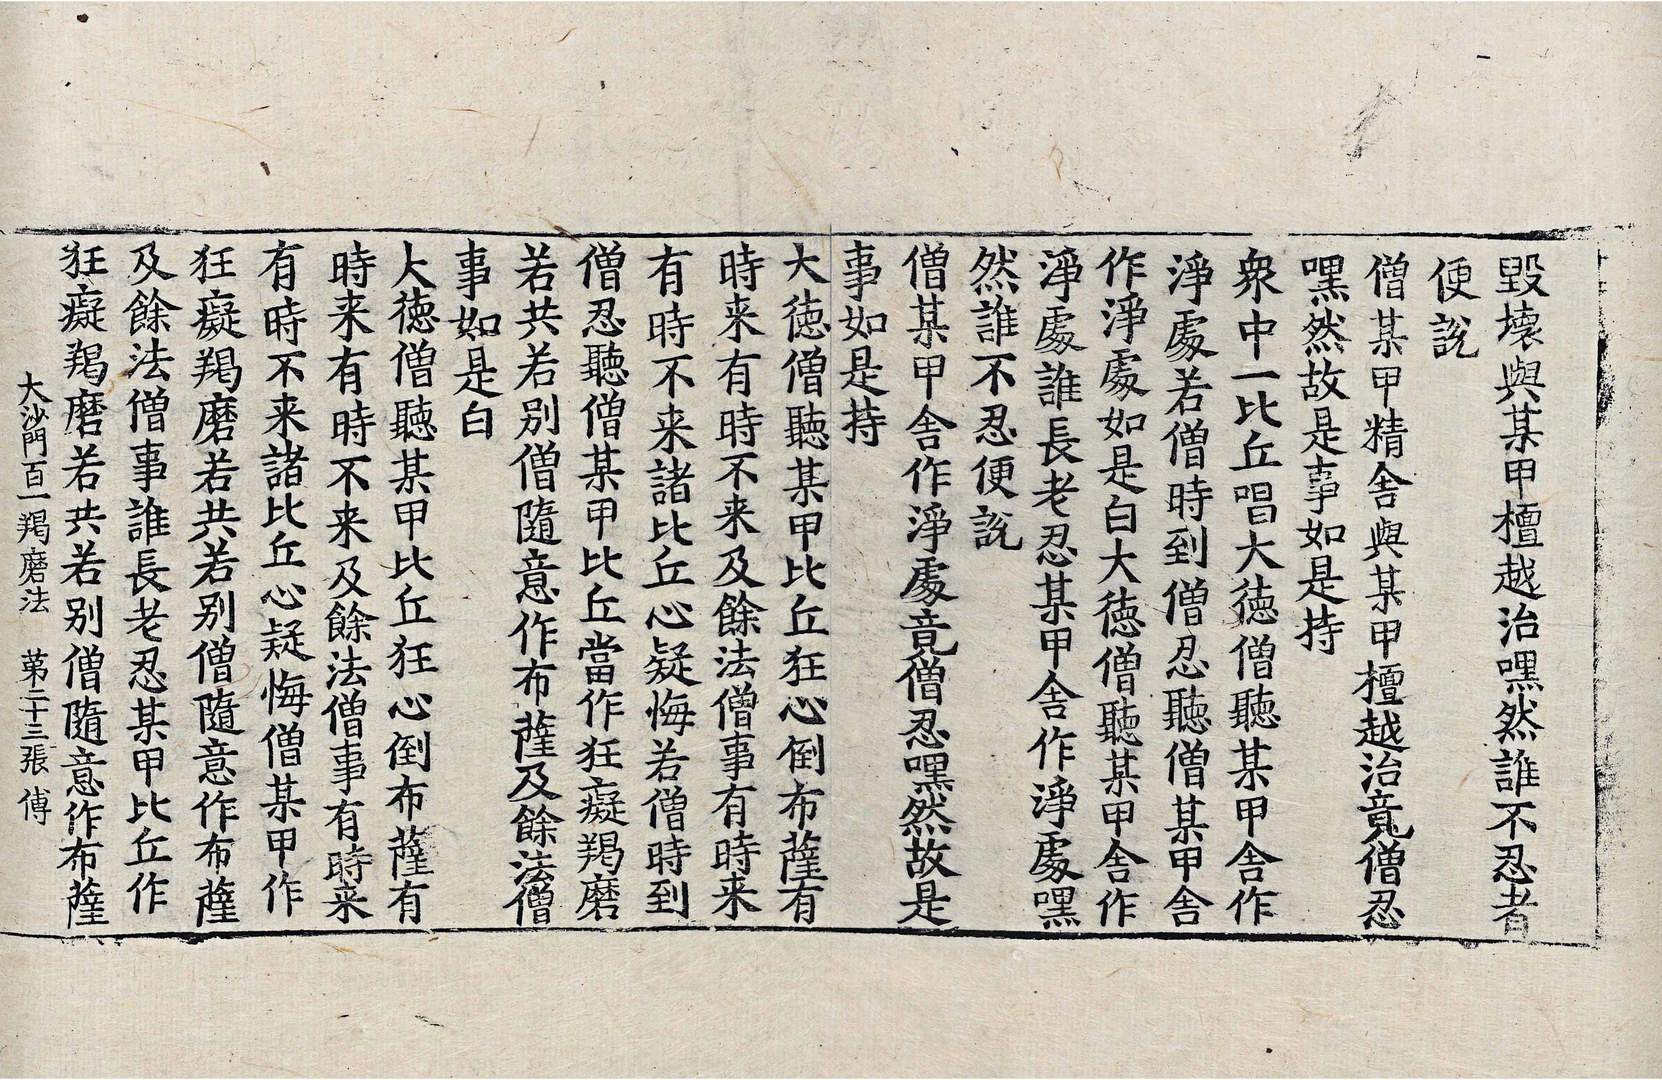 毀壞與某甲檀越治嘿然誰不忍者
便說
僧某甲精舍與某甲檀越治竟僧忍
嘿然故是事如是持
衆中一比丘唱大德僧聽某甲舍作
淨處若僧時到僧忍聽僧某甲舍
作淨處如是白大德僧聽某甲舍作
淨處誰長老忍某甲舍作淨處嘿
然誰不忍便說
僧某甲舍作淨處竟僧忍嘿然故是
事如是持
大德僧聽某甲比丘狂心倒布薩有
時来有時不来及餘法僧事有時来
有時不来諸比丘心疑悔若僧時到
僧忍聽僧某甲比丘當作狂癡羯磨
若共若别僧隨意作布薩及餘法僧
事如是白
大德僧聽某甲比丘狂心倒布薩有
時来有時不来及餘法僧事有時来
有時不来諸比丘心疑悔僧某甲作
狂癡羯磨若共若别僧隨意作布薩
及餘法僧事誰長老忍某甲比丘作
狂癡羯磨若共若别僧隨意作布薩
大沙門百一羯磨法 第二十三張 傅